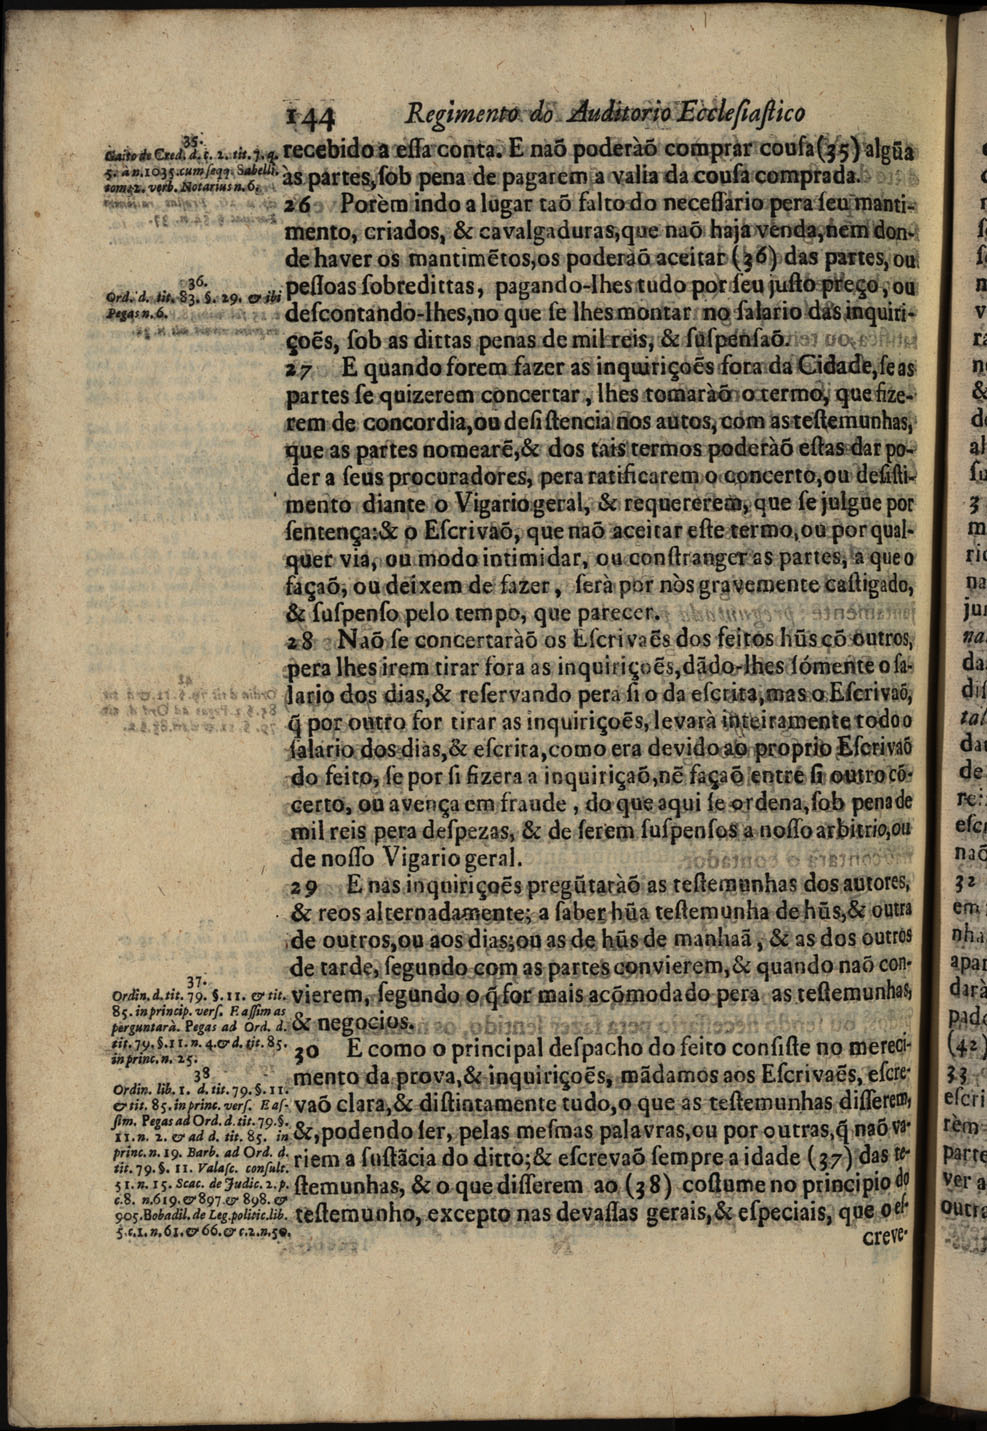 144 Regimento do Auditorio Ecclesiastico
recebido a essa conta. E naõ poderàõ comprar cousa (35) algũa
às partes, sob pena de pagarem a valia da cousa comprada.
26 Porèm indo a lugar taõ falto do necessario pera seu manti-
mento, criados, & cavalgaduras, que naõ haja venda, nem don-
de haver os mantimẽtos, os poderàõ aceitar (36) das partes, ou
pessoas sobredittas, pagando-lhes tudo por seu justo preço, ou
descontando-lhes, no que se lhes montar no salario das inquiri-
çoẽs, sob as dittas penas de mil reis, & suspensaõ.
27 E quando forem fazer as inquiriçoẽs fora da Cidade, se as
partes se quizerem concertar, lhes tomaràõ o termo, que fize-
rem de concordia, ou desistencia nos autos, com as testemunhas,
que as partes nomearẽ, & dos tais termos poderàõ estas dar po-
der a seus procuradores, pera ratificarem o concerto, ou desisti-
mento diante o Vigario geral, & requererem, que se julgue por
sentença: & o Escrivaõ, que naõ aceitar este termo, ou por qual-
quer via, ou modo intimidar, ou constranger as partes, a que o
façaõ, ou deixem de fazer, serà por nòs gravemente castigado,
& suspenso pelo tempo, que parecer.
28 Naõ se concertaràõ os Escrivaẽs dos feitos hũs cõ outros,
pera lhes irem tirar fora as inquiriçoẽs, dãdo-lhes sómente o sa-
lario dos dias, & reservando pera si o da escrita, mas o Escrivaõ,
q̃ por outro for tirar as inquiriçoẽs, levarà inteiramente todo o
salario dos dias, & escrita, como era devido ao proprio Escrivaõ
do feito, se por si fizera a inquiriçaõ, nẽ façaõ entre si outro cõ-
certo, ou avença em fraude, do que aqui se ordena, sob pena de
mil reis pera despezas, & de serem suspensos a nosso arbitrio, ou
de nosso Vigario geral.
29 E nas inquiriçoẽs pregũtaràõ as testemunhas dos autores,
& reos alternadamente; a saber hũa testemunha de hũs, & outra
de outros, ou aos dias; ou as de hũs de manhaã, & as dos outros
de tarde, segundo com as partes convierem, & quando naõ con-
vierem, segundo o q̃ for mais acõmodado pera as testemunhas,
& negocios.
30 E como o principal despacho do feito consiste no mereci-
mento da prova, & inquiriçoẽs, mãdamos aos Escrivaẽs, escre-
vaõ clara, & distintamente tudo, o que as testemunhas disserem,
&, podendo ser, pelas mesmas palavras, ou por outras, q̃ naõ va-
riem a sustãcia do ditto; & escrevaõ sempre a idade (37) das te-
stemunhas, & o que disserem ao (38) costume no principio do
testemunho, excepto nas devassas gerais, & especiais, que o es-
creve-
35.
Gaito de Cred. d. c. 2. tit. 7. q.
5. à n. 1035. cum seqq. Sabell.
tom. 2. verb. Notarius n. 6.
36.
Ord. d. tit. 83. §. 29. & ibi
Pegas n. 6.
37.
Ordin. d. tit. 79. §. 11. & tit.
85. in princip. vers. E assim as
perguntarà. Pegas ad Ord. d.
tit. 79. §. 11. n. 4. & d. tit. 85.
in princ. n. 25.
38
Ordin. lib. 1. d. tit. 79. §. 11.
& tit. 85. in princ. vers. E as-
sim. Pegas ad Ord. d. tit. 79. §.
11. n. 2. & ad d. tit. 85. in
princ. n. 19. Barb. ad Ord. d.
tit. 79. §. 11. Valasc. consult.
51. n. 15. Scac. de Judic. 2. p.
c. 8. n. 619. & 897. & 898. &
905. Bobadil. de Leg. politic. lib.
5. c. 1. n. 61. & 66. & c. 2. n. 50.